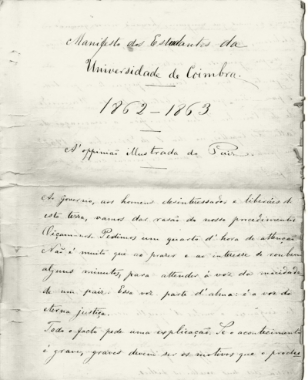 Manifesto dos Estudantes da
Universidade de Coimbra.
1862-1863
A' oppinião illustrada do Paiz.
Ao governo, aos homens desinteressados e liberáes de
esta terra, vamos dar rasão do nosso procedimento
Pedimos um quarto d'hora de attenção
Não é muito que ao prazer e ao interesse se roubem
alguns minutos, para attender á voz da mocidade
de um paiz. Essa voz parte d'alma: é a voz da
eterna justiça.
Todo o facto pede uma explicação. Se o acontecimento
é grave, graves devem ser os motivos que o